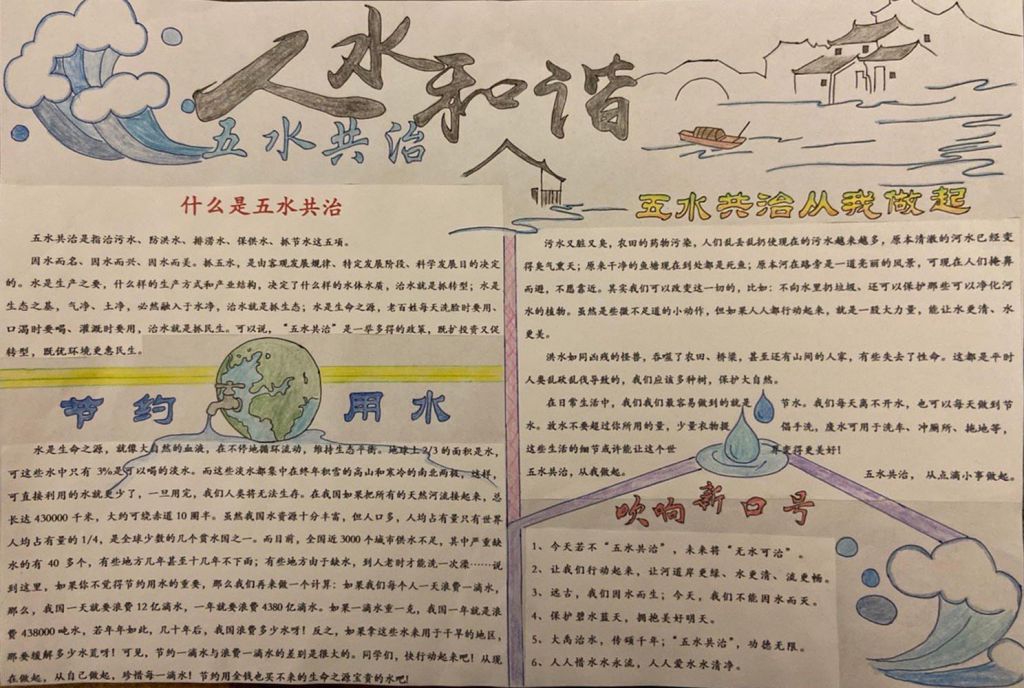 人水和谐
五水共治
什么是五水共治
五水共治是指治污水、防洪水、排涝水、保供水、抓节水这五项。
因水而名、因水而兴、因水而美。抓五水，是由客观发展规律、特定发展阶段、科学发展目的决定
的。水是生产之要，什么样的生产方式和产业结构，决定了什么样的水体水质，治水就是抓转型；水是
生态之基，气净、土净，必然融入于水净，治水就是抓生态；水是生命之源，老百姓每天洗脸时要用、
口渴时要喝、灌溉时要用，治水就是抓民生。可以说，“五水共治”是一举多得的政策，既扩投资又促
转型，既优环境更惠民生。
节约用水
水是生命之源，就像大自然的血液，在不停地循环流动，维持生态平衡。地球上2/3的面积是水，
可这些水中只有 3%是可以喝的淡水。而这些淡水都集中在终年积雪的高山和寒冷的南北两极，这样，
可直接利用的水就更少了，一旦用完，我们人类将无法生存。在我国如果把所有的天然河流接起来，总
长达 430000 千米，大约可绕赤道 10 圈半。虽然我国水资源十分丰富，但人口多，人均占有量只有世界
人均占有量的 1/4，是全球少数的几个贫水国之一。而目前，全国近 3000 个城市供水不足，其中严重缺
水的有 40 多个，有些地方几年甚至十几年不下雨；有些地方由于缺水，到人老时才能洗一次澡……说
到这里，如果你不觉得节约用水的重要，那么我们再来做一个计算：如果我们每个人一天浪费一滴水，
那么，我国一天就要浪费 12 亿滴水，一年就要浪费 4380 亿滴水。如果一滴水重一克，我国一年就是浪
费 438000 吨水，若年年如此，几十年后，我国浪费多少水呀！反之，如果拿这些水来用于干旱的地区，
那要缓解多少水荒呀！可见，节约一滴水与浪费一滴水的差别是很大的。同学们，快行动起来吧！从现
在做起，从自己做起，珍惜每一滴水！节约用金钱也买不来的生命之源宝贵的水吧！
五水共治从我做起
污水又脏又臭，农田的药物污染，人们乱丢乱扔使现在的污水越来越多，原本清澈的河水已经变
得臭气熏天；原来干净的鱼塘现在到处都是死鱼；原本河在路旁是一道亮丽的风景，可现在人们掩鼻
而避，不愿靠近。其实我们可以改变这一切的，比如：不向水里扔垃圾、还可以保护那些可以净化河
水的植物。虽然是些微不足道的小动作，但如果人人都行动起来，就是一股大力量，能让水更清、水
更美。
洪水如同凶残的怪兽，吞噬了农田、桥梁，甚至还有山间的人家，有些失去了性命。这都是平时
人类乱砍乱伐导致的，我们应该多种树，保护大自然。
在日常生活中，我们我们最容易做到的就是 节水。我们每天离不开水，也可以每天做到节
水。放水不要超过你所用的量，少量衣物提 倡手洗，废水可用于洗车、冲厕所、拖地等，
这些生活的细节或许能让这个世 界变得更美好！
五水共治，从我做起。 五水共治， 从点滴小事做起。
吹响新口号
1、今天若不“五水共治”，未来将“无水可治”。
2、让我们行动起来，让河道岸更绿、水更清、流更畅。
3、远古，我们因水而生；今天，我们不能因水而灭。
4、保护碧水蓝天，拥抱美好明天。
5、大禹治水，传颂千年；“五水共治”，功德无限。
6、人人惜水水永流，人人爱水水清净。